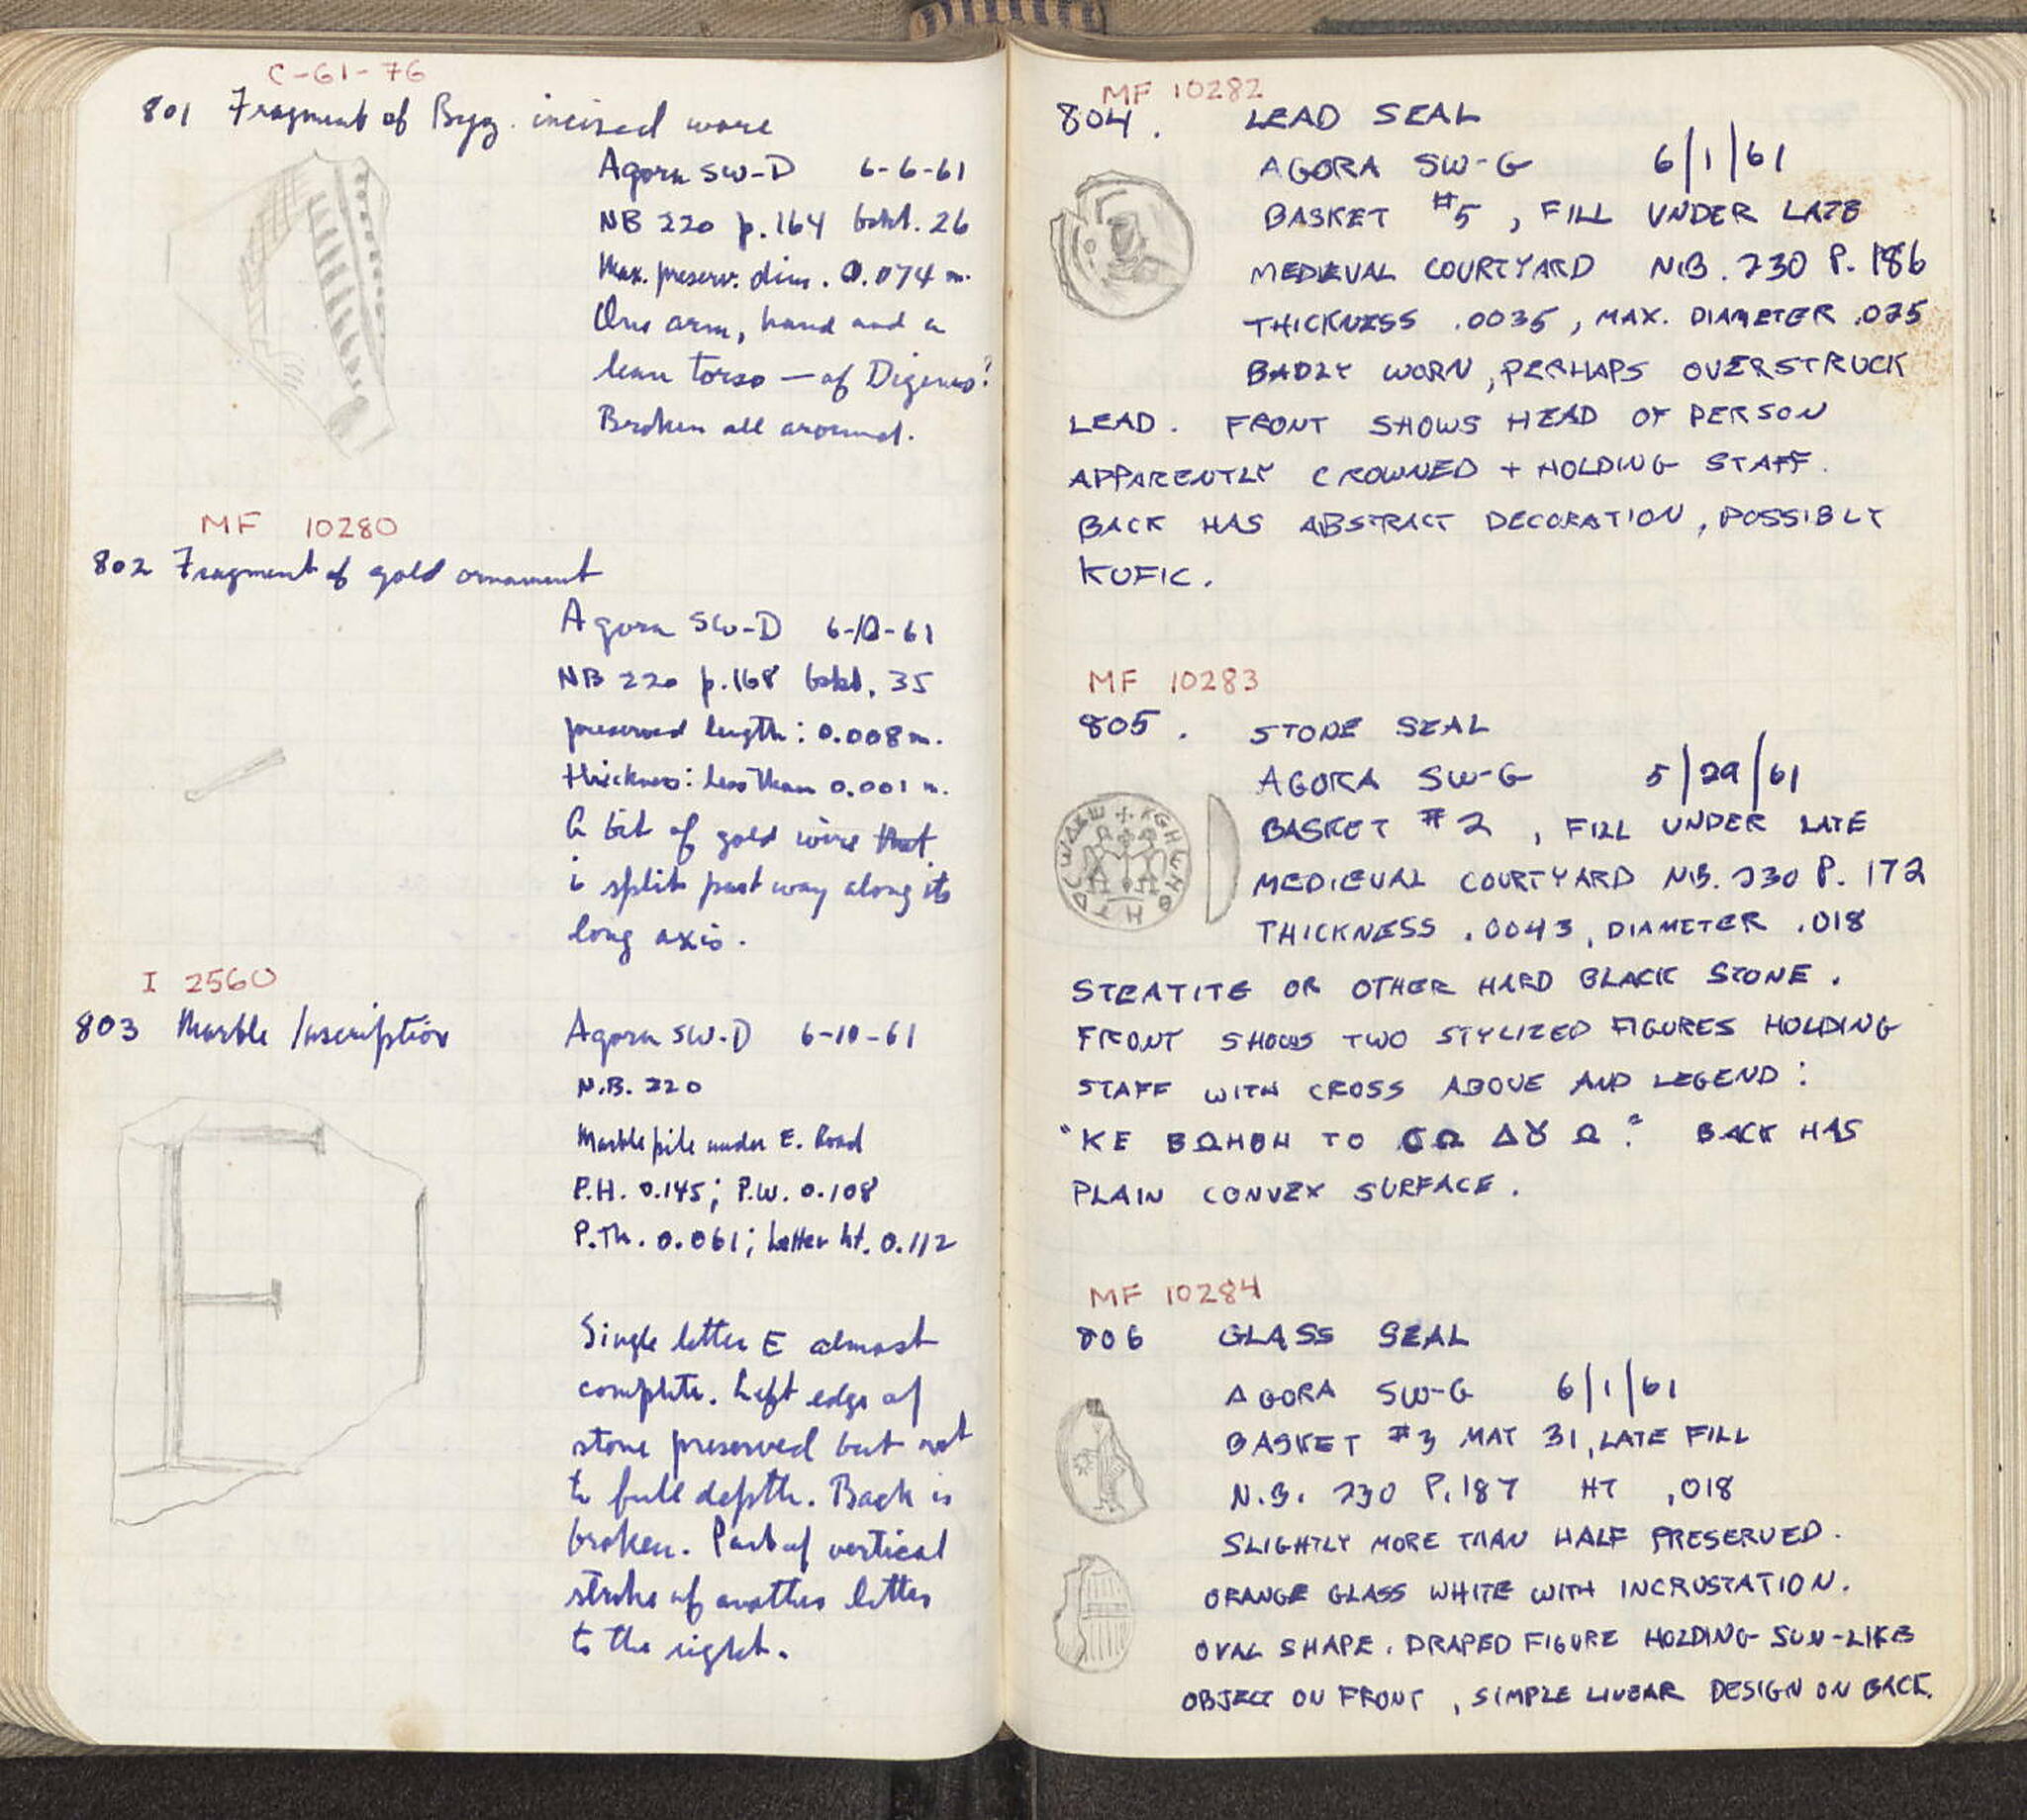 C-61-76
801 Fragment of Byz. incised ware
Agora SW-D 6-6-61
NB 220 p.164 bskt. 26
Max. preserv. dim. 0.074 m.
One arm, hand and a
lean torso — of Digenis?
Broken all around.
MF 10280
802 Fragment of gold ornament
Agora SW-D 6-10-61
NB 220 p.168 bskt. 35
preserved length: 0.008 m.
thickness: less than 0.001 m.
A bit of gold wire that
is split part way along its
long axis.
I 2560
803 Marble Inscription Agora SW-D 6-10-61
N.B. 220
Marble pile under E. Road
P.H. 0.145; P.W. 0.108
P.Th. 0.061; Letter ht. 0.112
Single letter E almost
complete. Left edge of
stone preserved but not
to full depth. Back is
broken. Part of vertical
stroke of another letter
to the right.
MF 10282
804. LEAD SEAL
AGORA SW-G 6/1/61
BASKET #5, FILL UNDER LATE
MEDIEVAL COURTYARD N.B. 230 P. 186
THICKNESS .0035, MAX. DIAMETER .025
BADLY WORN, PERHAPS OVERSTRUCK
LEAD. FRONT SHOWS HEAD OF PERSON
APPARENTLY CROWNED + HOLDING STAFF.
BACK HAS ABSTRACT DECORATION, POSSIBLY
KUFIC.
MF 10283
805. STONE SEAL
AGORA SW-G 5/29/61
BASKET #2, FILL UNDER LATE
MEDIEVAL COURTYARD N.B. 230 P. 172
THICKNESS .0043, DIAMETER .018
STEATITE OR OTHER HARD BLACK STONE.
FRONT SHOWS TWO STYLIZED FIGURES HOLDING
STAFF WITH CROSS ABOVE AND LEGEND:
"ΚΕ ΒΩΗΘΗ ΤΟ CΩ ΔȢ Ω." BACK HAS
PLAIN CONVEX SURFACE.
MF 10284
806 GLASS SEAL
AGORA SW-G 6/1/61
BASKET #3 MAY 31, LATE FILL
N.B. 230 P. 187 HT .018
SLIGHTLY MORE THAN HALF PRESERVED.
ORANGE GLASS WHITE WITH INCRUSTATION.
OVAL SHAPE. DRAPED FIGURE HOLDING SUN-LIKE
OBJECT ON FRONT, SIMPLE LINEAR DESIGN ON BACK.